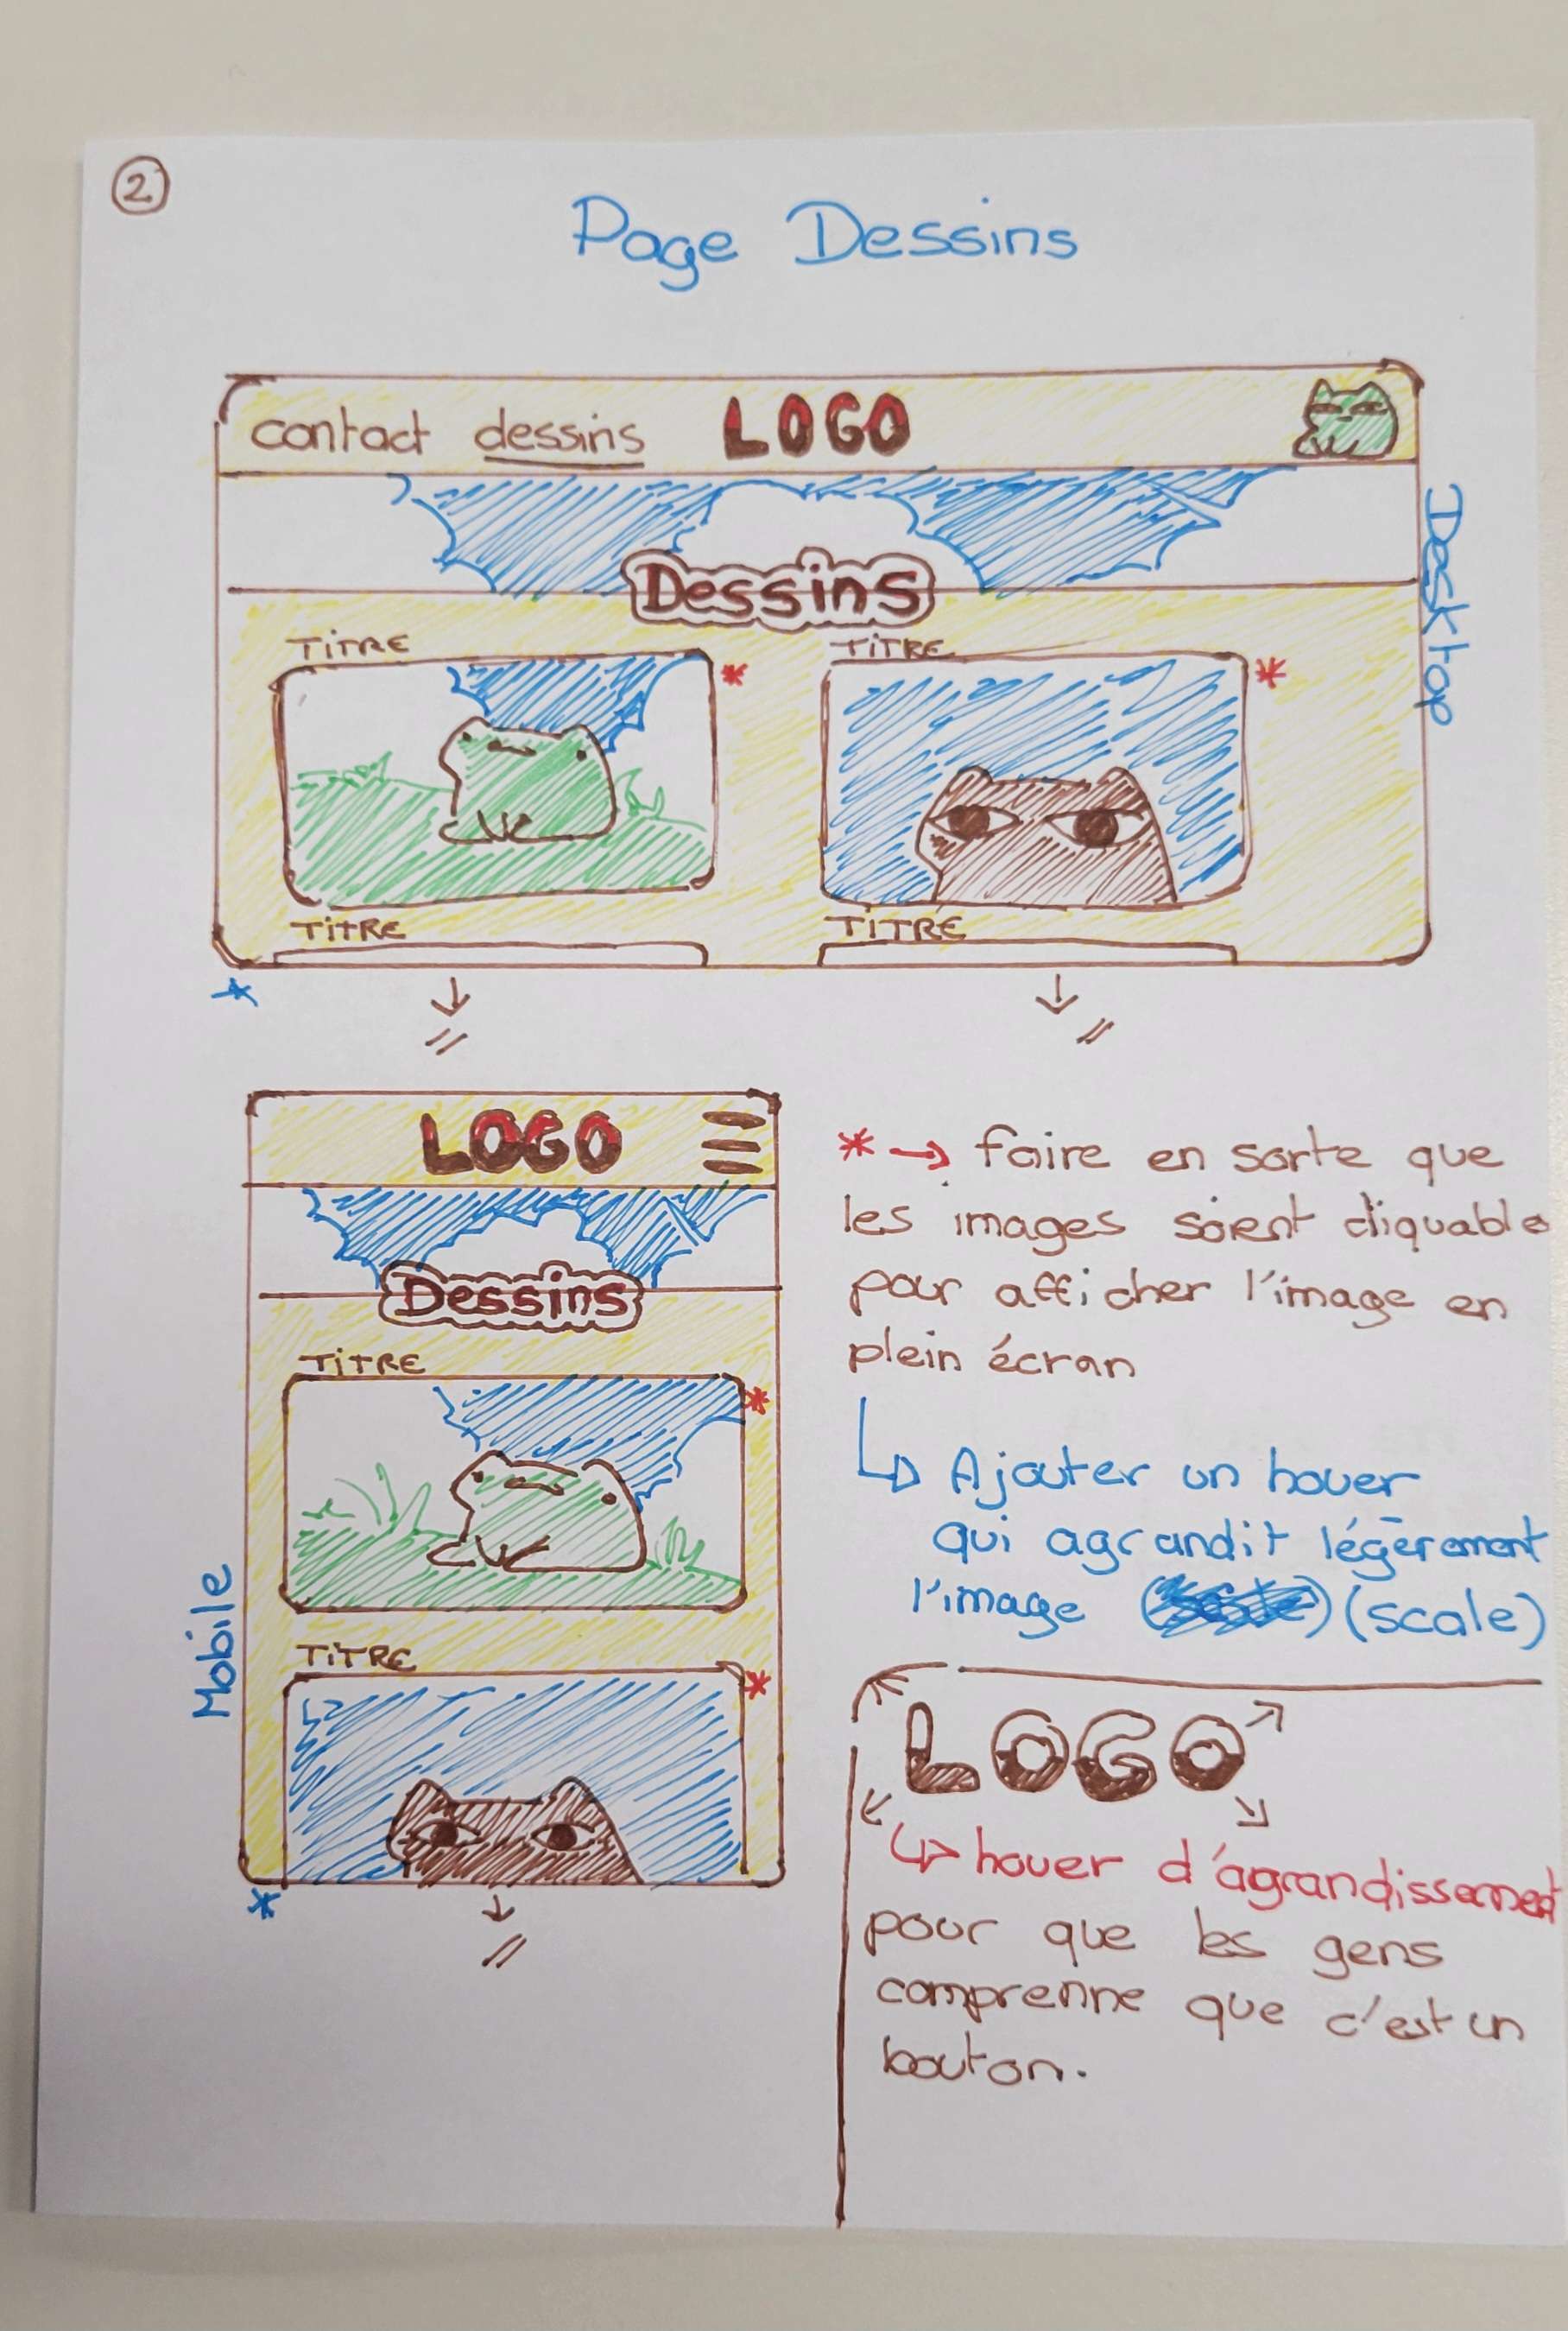 2
Page Dessins
contact dessins LOGO
Desktop
Dessins
TITRE TITRE
TITRE TITRE
LOGO
Dessins
TITRE
TITRE
Mobile
* → faire en sorte que
les images soient cliquable
pour afficher l'image en
plein écran
↳ Ajouter un hover
qui agrandit légèrement
l'image (scale)
LOGO
↳ hover d'agrandissement
pour que les gens
comprenne que c'est un
bouton.